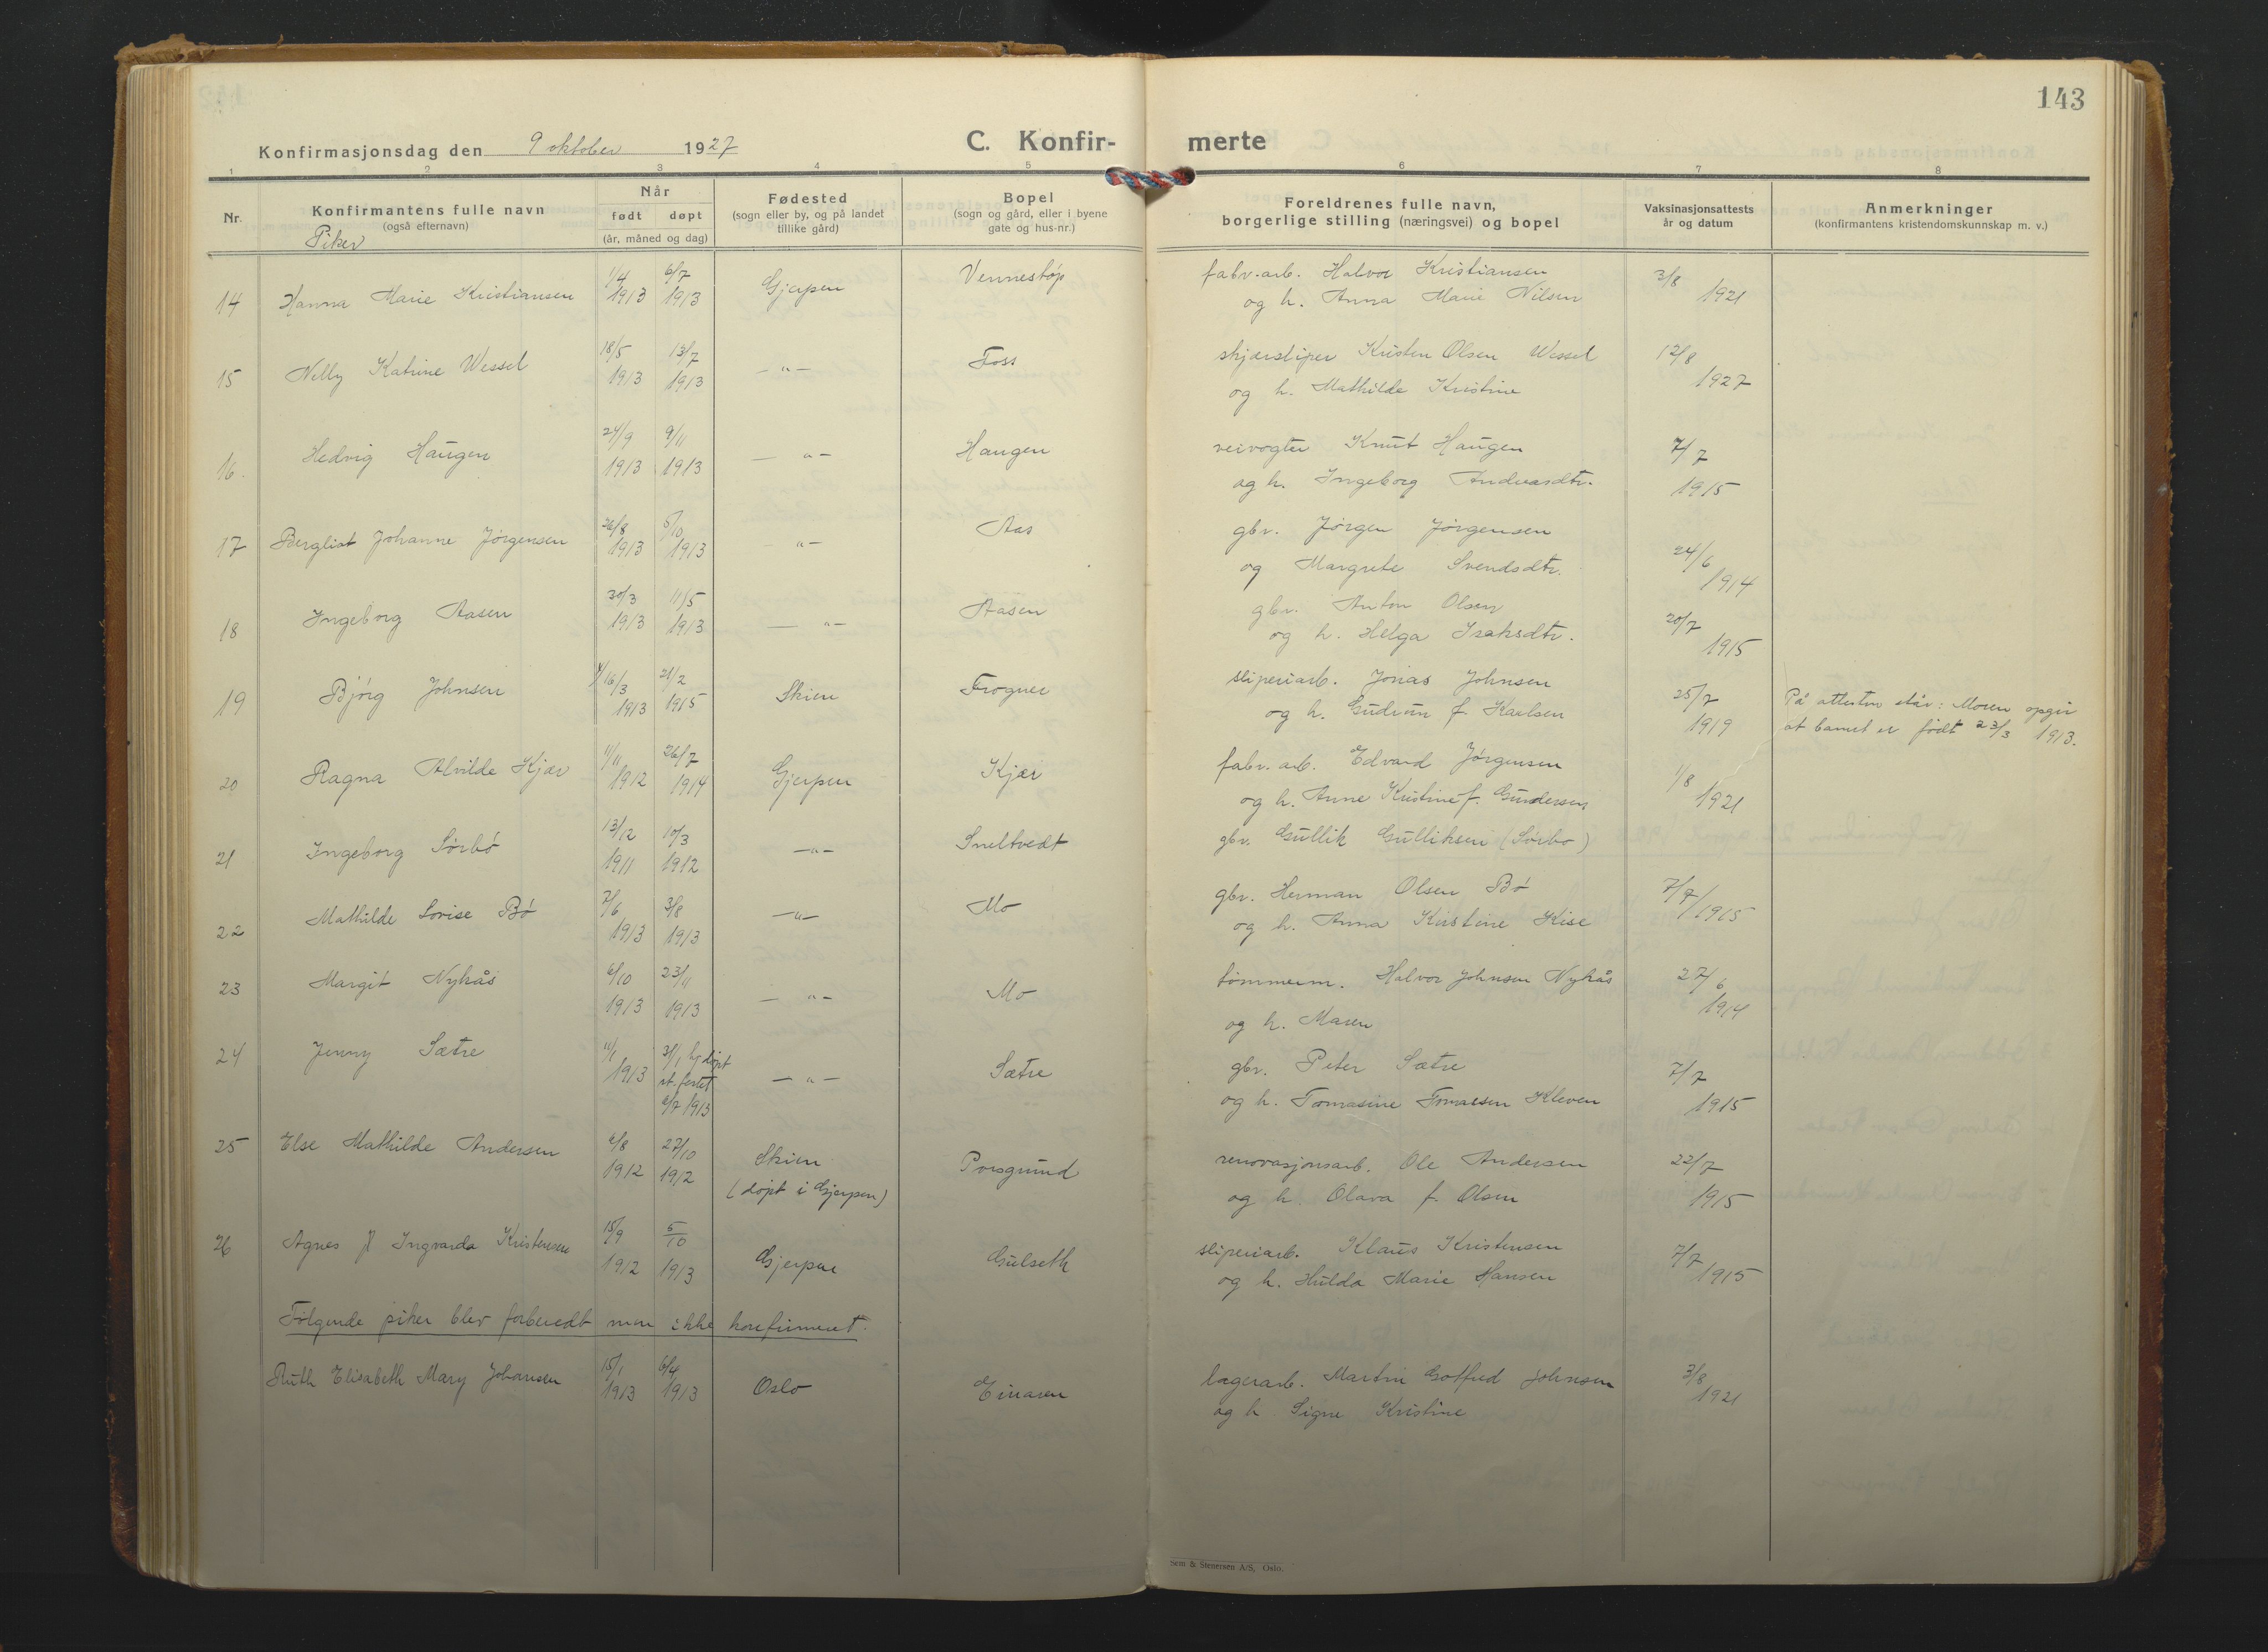 143
Konfirmasjonsdag den 9 oktober 1927
C. Konfir- merte
1 2 3 4 5 6 7 8
Nr.
Konfirmantens fulle navn
(også efternavn)
Piker
Når
født døpt
(år, måned og dag)
Fødested
(sogn eller by, og på landet
tillike gård)
Bopel
(sogn og gård, eller i byene
gate og hus-nr.)
Foreldrenes fulle navn,
borgerlige stilling (næringsvei) og bopel
Vaksinasjonsattests
år og datum
Anmerkninger
(konfirmantens kristendomskunnskap m. v.)
14 Hanna Marie Kristiansen 1/4 1913 6/7 1913 Gjerpen Vennestøp fabr.arb. Halvor Kristiansen 3/8 1921
og h. Anna Marie Nilsen
15 Nelly Katrine Wessel 18/5 1913 13/7 1913 —"— Foss skjærsliper Kristen Olsen Wessel 12/8 1927
og h. Mathilde Kristine
16. Hedvig Haugen 24/9 1913 9/11 1913 —"— Haugen veivogter Knut Haugen 7/7 1915
og h. Ingeborg Andreasdtr.
17 Bergliot Johanne Jørgensen 26/8 1913 5/10 1913 —"— Aas gbr. Jørgen Jørgensen 24/6 1914
og Margrete Svendsdtr.
18 Ingeborg Aasen 30/3 1913 11/5 1913 —"— Aasen gbr. Anton Olsen 20/7 1915
og h. Helga Isaksdtr.
19 Bjórg Johnsen 16/3 1913 21/2 1915 Skien Frogner sliperiarb. Jonas Johnsen 25/7 1919 På attesten står: Moren opgir
og h. Gudrun f. Karlsen at barnet er født 23/3 1913.
20 Ragna Alvilde Kjær 11/11 1912 26/7 1914 Gjerpen Kjær fabr. arb. Edvard Jørgensen 1/8 1921
og h. Anne Kristine f. Gundersen
21 Ingeborg Sørbó 13/12 1911 10/3 1912 —"— Sneltvedt gbr. Gullik Gulliksen (Sørbo)
22 Mathilde Lovise Bó 7/6 1913 3/8 1913 —"— Mo gbr. Herman Olsen Bó 7/7/1915
og h. Anna Kristine Kise
23 Margit Nyhås 6/10 1913 23/11 1913 —"— Mo tømmerm. Halvor Johnsen Nyhås 27/6 1914
og h. Maren
24 Jenny Sætre 11/1 1913 31/1 hj.døpt —"— Sætre gbr. Peter Sætre 7/7 1915
st. festet 6/7 1913 og h. Tomasine Tomassen Kleven
25 Else Mathilde Andersen 6/8 1912 27/10 1912 Skien Porsgrund renovasjonsarb. Ole Andersen 22/7 1915
(døpt i Gjerpen) og h. Olava f. Olsen
26 Agnes Ingvarda Kristensen 15/9 1912 5/10 1913 Gjerpen Gulseth sliperiarb. Klaus Kristensen 7/7 1915
og h. Hulda Marie Hansen
Følgende piker blev forberedt men ikke konfirmert.
Ruth Elisabeth Mary Johansen 15/1 1913 6/4 1913 Oslo Einaren lagerarb. Martin Gotfred Johnsen 3/8 1921
og h. Signe Kristine
Sem & Stenersen A/S, Oslo.